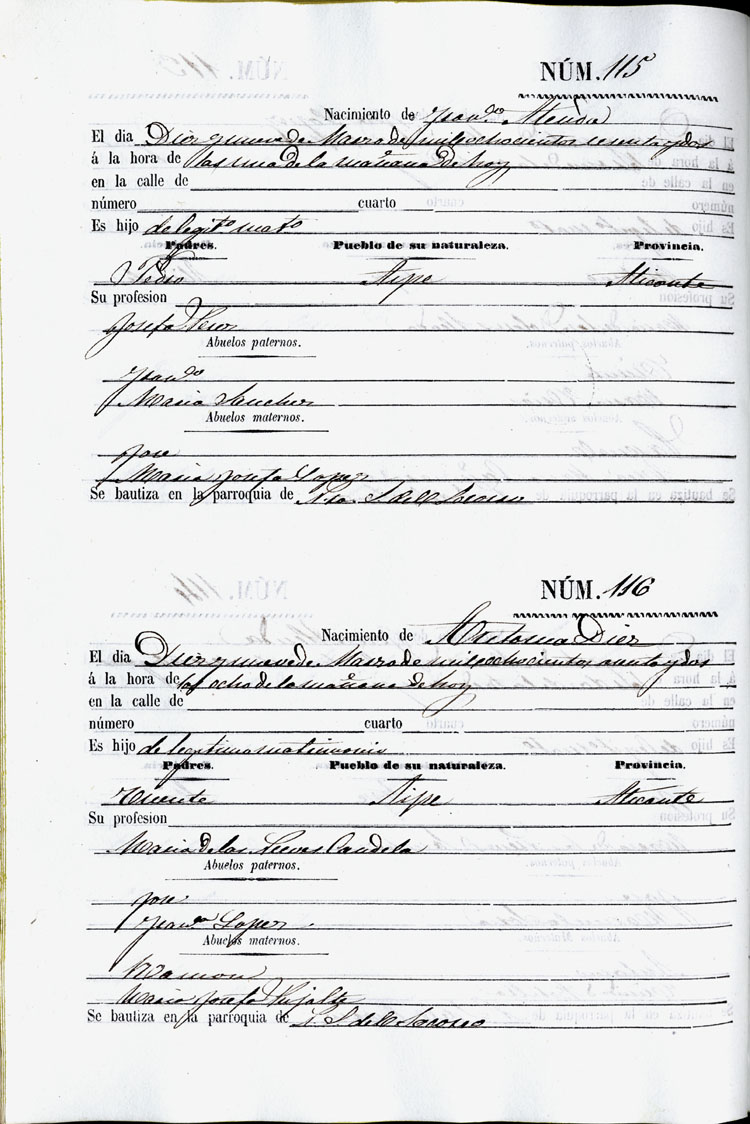 NÚM. 115
Nacimiento de Fran.co
El dia Diez y nueve de Marzo de mil ochocientos sesenta y dos
á la hora de las una de la mañana de hoy
en la calle de
número cuarto
Es hijo de legit.o mat.o
Padres. Pueblo de su naturaleza. Provincia.
Pedro Aspe Alicante
Su profesion
Josefa
Abuelos paternos.
Fran.co
Maria Sanchez
Abuelos maternos.
Jose
Maria Josefa Lopez
Se bautiza en la parroquia de Ntra. S. del Socorro
NÚM. 116
Nacimiento de Antonia Diez
El dia Diez y nueve de Marzo de mil ochocientos sesenta y dos
á la hora de las ocho de la mañana de hoy
en la calle de
número cuarto
Es hijo de legitimo matimonio
Padres. Pueblo de su naturaleza. Provincia.
Vicente Aspe Alicante
Su profesion
Maria de las Nieves Candela
Abuelos paternos.
Jose
Fran.ca Lopez
Abuelos maternos.
Ramon
Maria Josefa Pujalte
Se bautiza en la parroquia de N. S. del Socorro